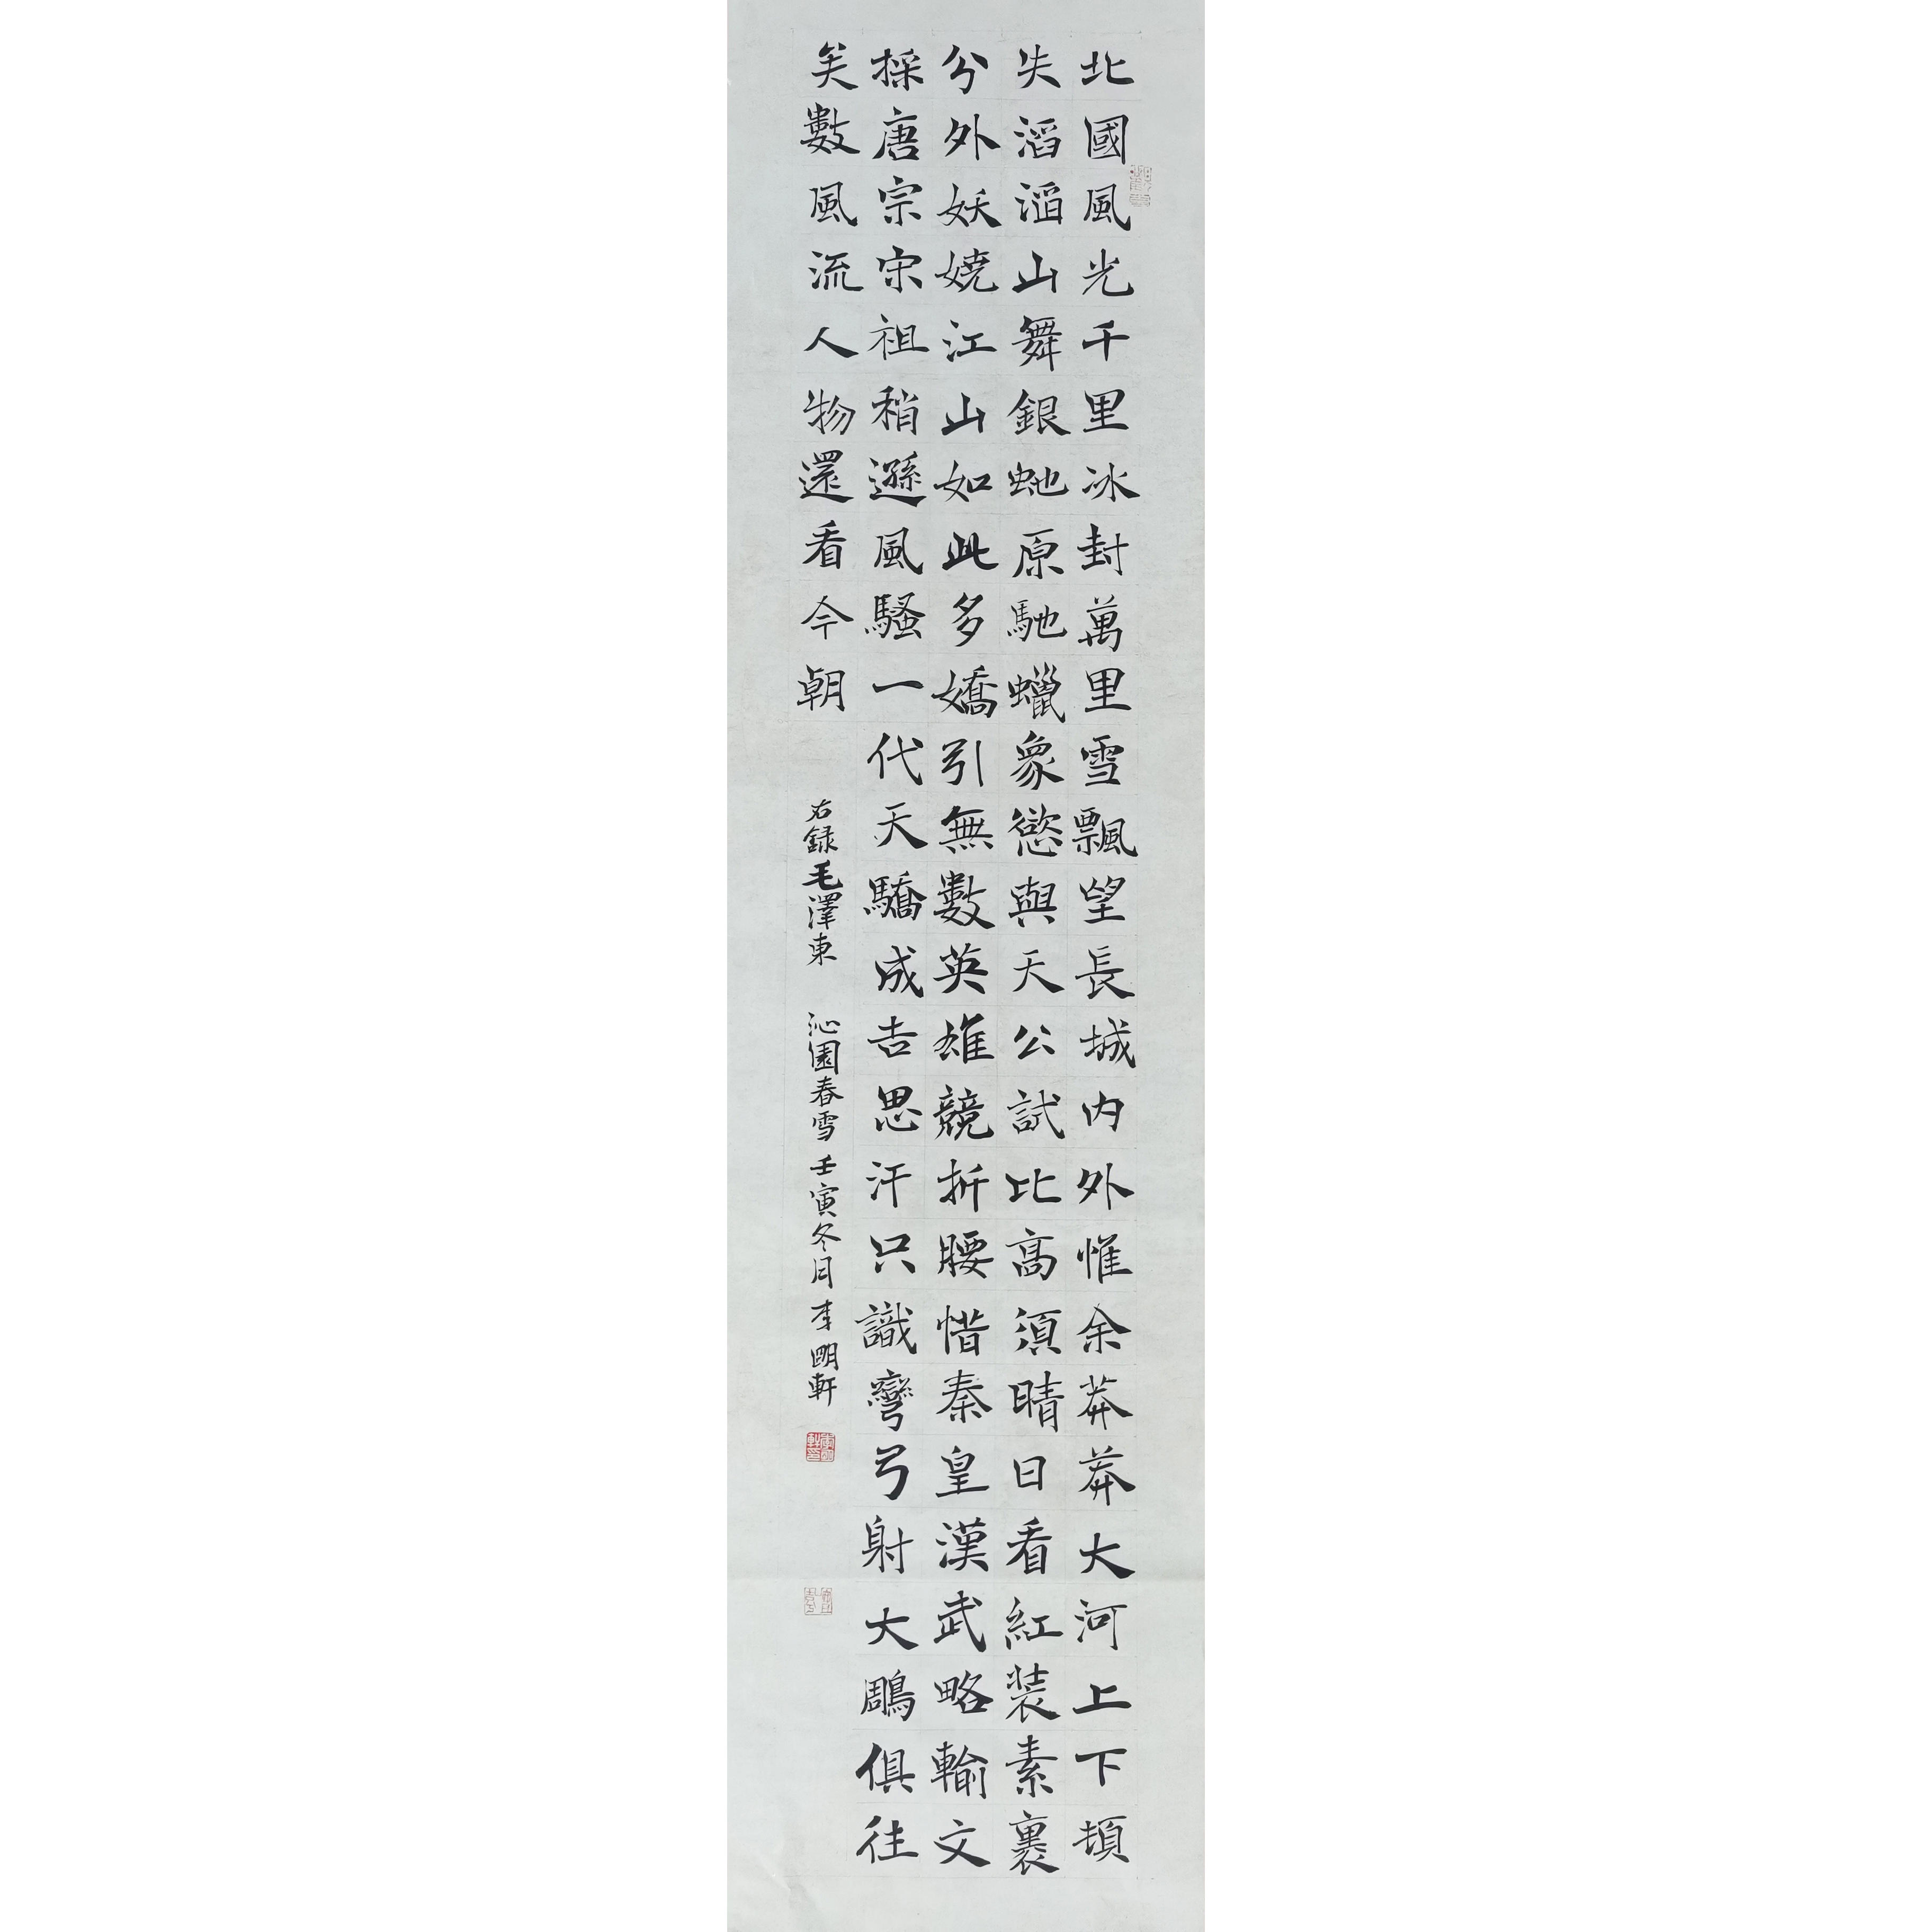 北國風光千里冰封萬里雪飄望長城内外惟余莽莽大河上下頓
失滔滔山舞銀虵原馳蠟象慾與天公試比高須晴日看紅装素裹
分外妖嬈江山如此多嬌引無數英雄競折腰惜秦皇漢武略輸文
採唐宗宋祖稍遜風騷一代天驕成吉思汗只識彎弓射大鵰俱往
矣數風流人物還看今朝
右録毛澤東 沁園春雪 壬寅冬月 李明軒